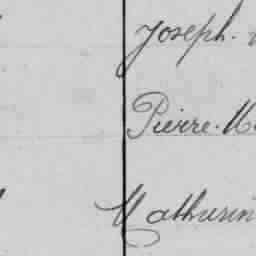 Joseph.
Pierre. M
Mathurin